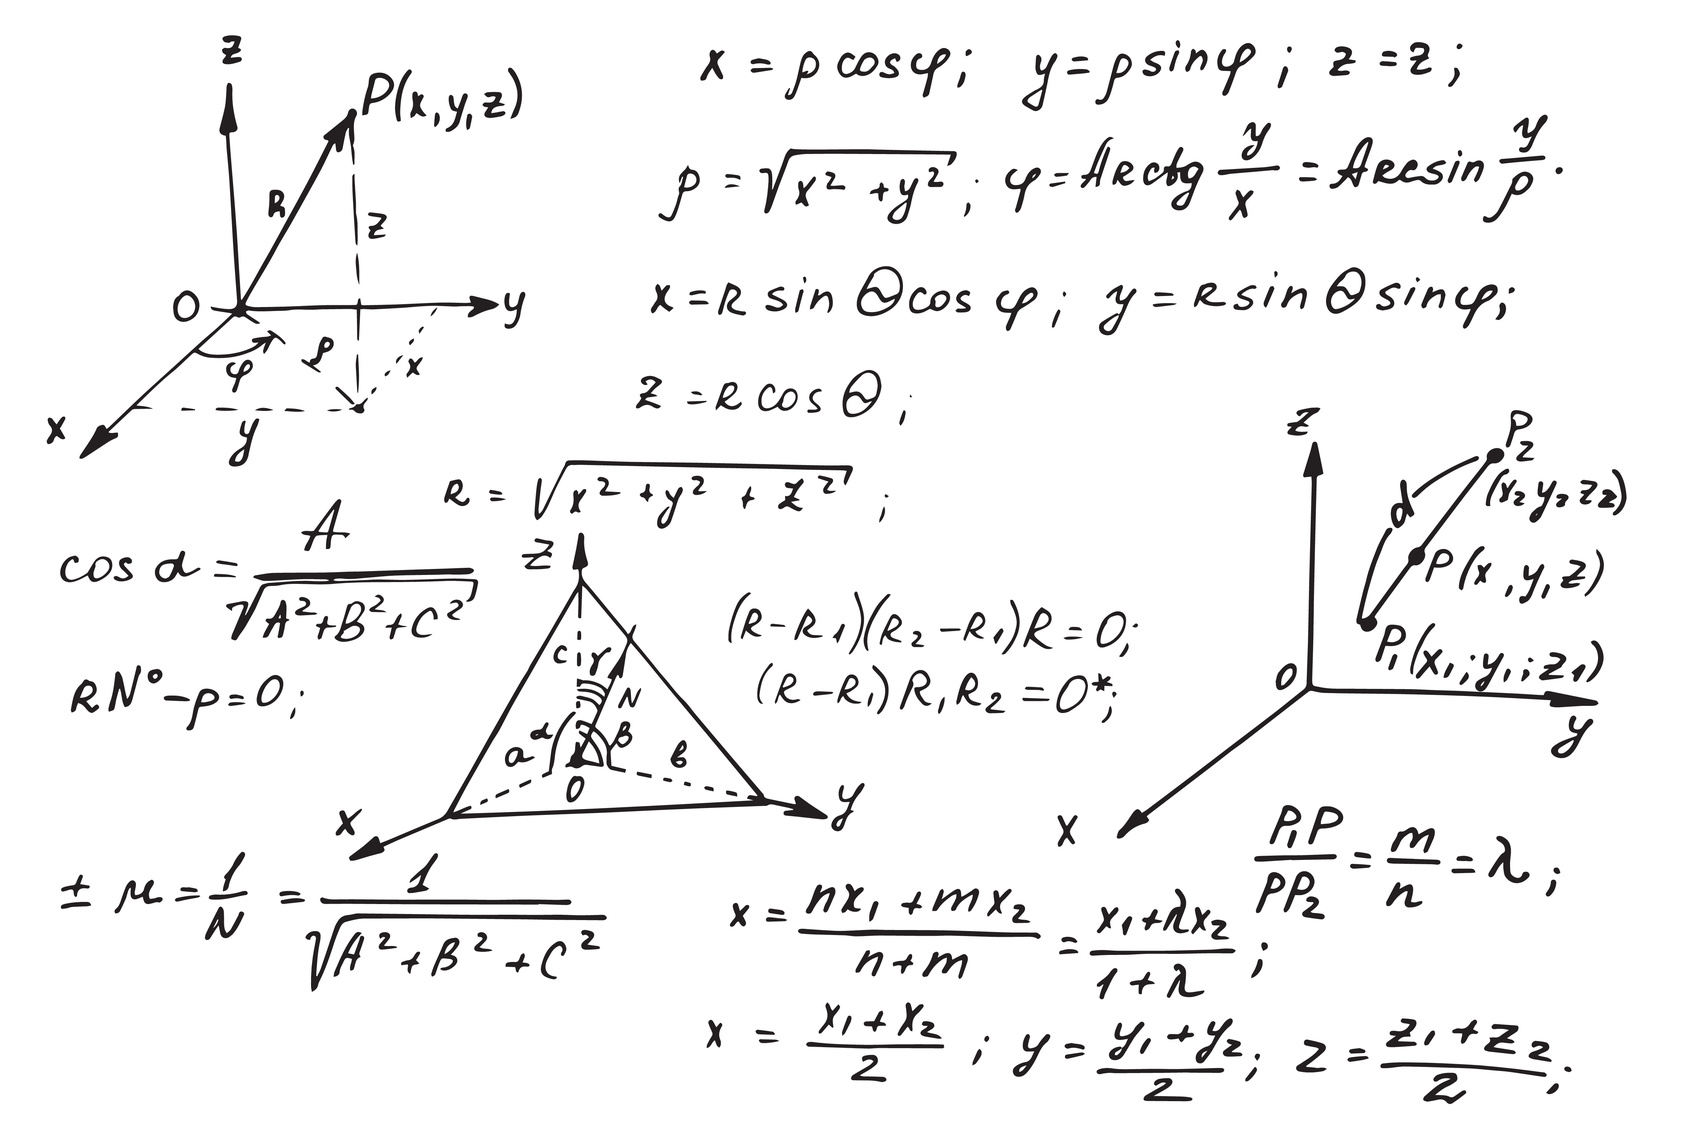 z
P(x,y,z)
R
z
O
y
φ
ρ
x
x
y
x = ρ cosφ; y = ρ sinφ ; z = z ;
ρ = √x² + y² ; φ = Arctg y/x = Arcsin y/ρ .
x = R sin Θ cos φ ; y = R sin Θ sinφ;
z = R cos Θ ;
R = √x² + y² + z² ;
cos α = A/√A²+B²+C²
RN° - p = 0;
z
c
γ
N
a
α
β
в
O
x
y
(R - R1)(R2 - R1)R = 0;
(R - R1) R1 R2 = 0*;
z
P2
(x2 y2 z2)
d
P(x,y,z)
P1(x1;y1;z1)
O
y
x
P1P/PP2 = m/n = λ ;
± μ = 1/N = 1/√A² + B² + C²
x = nx1 + mx2/n+m = x1+λx2/1+λ ;
x = x1 + x2/2 ; y = y1 + y2/2 ; z = z1 + z2/2 ;